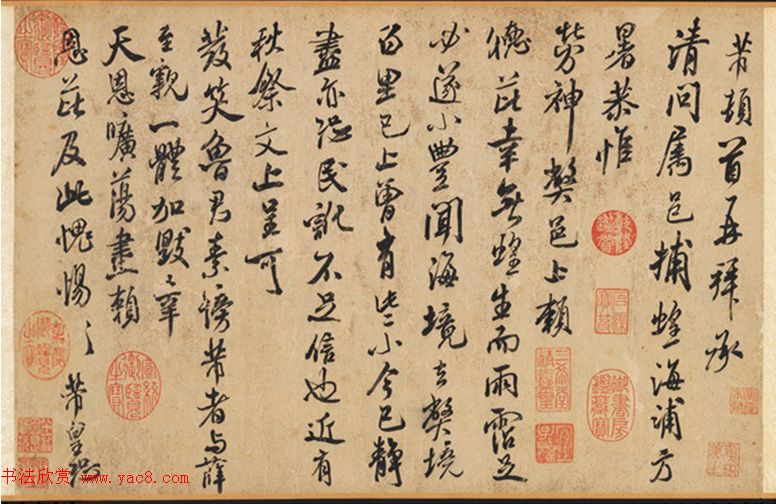 芾頓首再拜承
清問屬邑捕蝗海浦方
暑恭惟
勞神弊邑上賴
德芘幸無蝗生而雨露足
必遂小豐聞海境去弊境
百里已上曾有些小今已靜
盡亦恐民訛不足信也近有
秋祭文上呈可
發笑魯君素謗芾者與薛
至親一體加毀〻
天恩曠蕩盡賴
恩芘及此愧惕〻 芾皇恐
书法欣赏 www.yac8.com